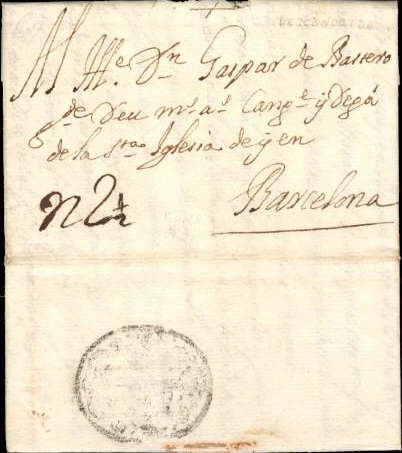 Al Ille Dn Gaspar de Bastero
gde Deu ms as Cange y Degà
de la Sta Iglesia de y en
Barcelona
n 2 1/2